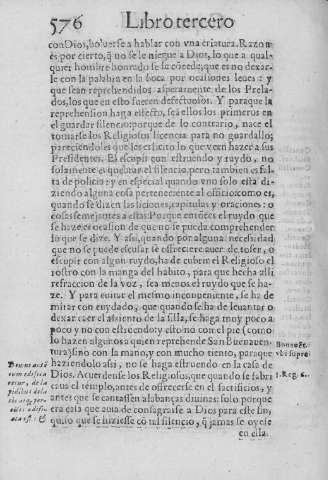 576 Libro tercero
con Dios, boluerse a hablar con vna criatura. Razon
es por cierto, q̃ no se le niegue a Dios, lo que a qual-
quier hombre honrado se le cõcede, que es no dexar-
le con la palabra en la boca por ocasiones leues: y
que sean reprehendidos asperamente de los Prela-
dos, los que en esto fueren defectuosos. Y para que la
reprehension haga effecto, sea ellos los primeros en
el guardar silencio: porque de lo contrario, nace el
tomarse los Religiosos licencia para no guardallo,
pareciendoles que les es licito lo que veen hazer a sus
Presidentes. El escopir con estruendo y ruydo, no
solamente es quebrar el silencio, pero tambien es fal
ta de policia: y en especial quando vno solo esta di-
ziendo alguna cosa perteneciente al officio: como es,
quando se dizen las liciones, capitulas y oraciones: o
cosas semejantes a estas. Porque entõces el ruydo que
se haze es ocasion de que no se pueda comprehender
lo que se dize. Y assi, quando por alguna necesidad
que no se puede escusar se offreciere auer de toser, o
escopir con algun ruydo, ha de cubrir el Religioso el
rostro con la manga del habito, para que hecha alli
refraccion de la voz, sea menos el ruydo que se ha-
ze. Y para euitar el mesmo inconueniente, se ha de
mirar con cuydado, que quando se ha de leuantar o
dexar caer el assiento de la silla, se haga muy poco a
poco y no con estruendo: y esto no con el pie (como
lo hazen algunos a quien reprehende San Buenauen-
tura) sino con la mano, y con mucho tiento, para que
haziendolo assi, no se haga estruendo en la casa de
Dios. Acuerdense los Religiosos, que quando se fabri
caua el templo, antes de offrecerse en el sacrificios, y
antes que se cantassen alabanças diuinas: solo porque
era casa que auia de consagrarse a Dios para este fin,
quiso que se hiziesse cõ tal silencio, q̃ jamas se oyesse
en ella
vbi supra
3. Reg. 6.